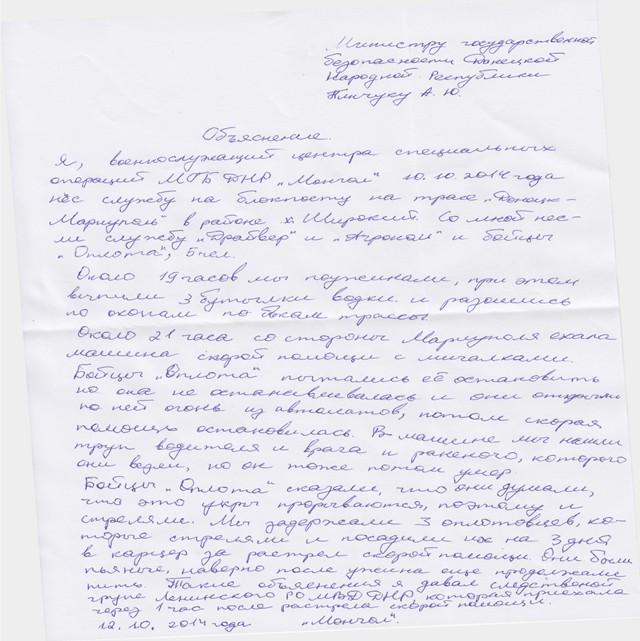 Министру государственной
безопасности Донецкой
Народной Республики
Пинчуку А. Ю.
Объяснение.
Я, военнослужащий центра специальных
операций МГБ ДНР „Мончол" 10.10.2014 года
нёс службу на блокпосту на трасе „Донецк-
Мариуполь" в районе х. Широкий. Со мной нес-
ли службу „Драйвер" и „Агроном" и бойцы
„Оплота", 5 чел.
Около 19 часов мы поужинали, при этом
выпили 3 бутылки водки. и разошлись
по окопам по бокам трассы.
Около 21 часа со стороны Мариуполя ехала
машина скорой помощи с мигалками.
Бойцы „Оплота" пытались её остановить
но она не останавливалась и они открыли
по ней огонь из автоматов, потом скорая
помощь остановилась. В машине мы нашли
труп водителя и врача и раненого, которого
они везли, но он тоже потом умер.
Бойцы „Оплота" сказали, что они думали,
что это укры прорываются, поэтому и
стреляли. Мы задержали 3 оплотовцев, ко-
торые стреляли и посадили их на 3 дня
в карцер за растрел скорой помощи. Они были
пьяные, наверно после ужина еще продолжали
пить. Такие объяснения я давал следственой
групе Ленинского РО МВД ДНР, которая приехала
через 1 час после растрела скорой помощи.
12.10.2014 года „Мончол".